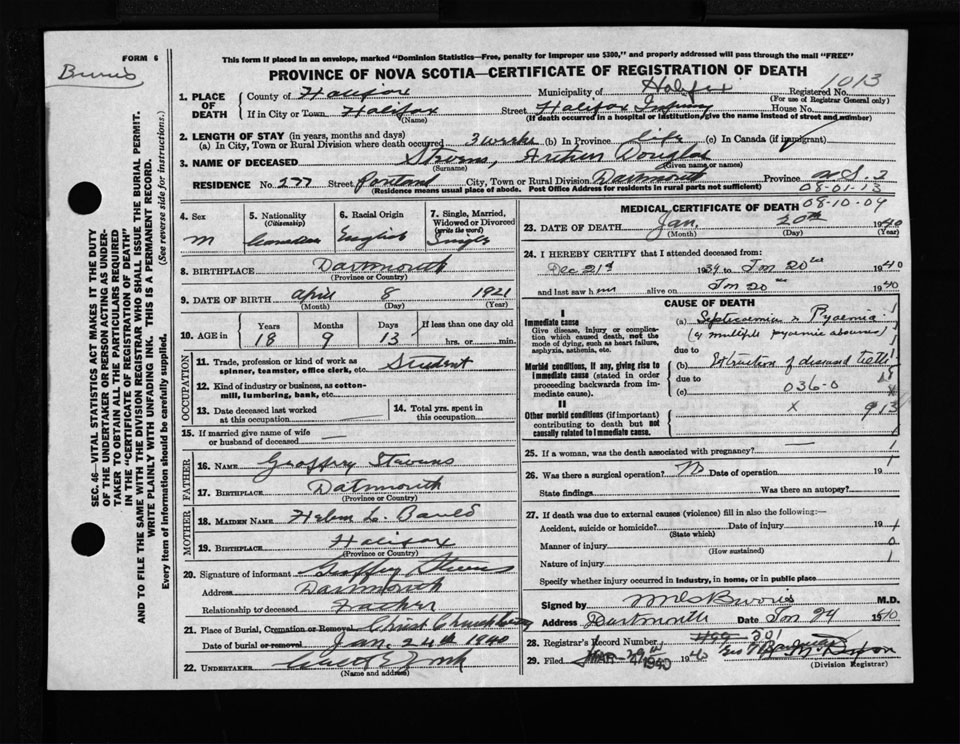 FORM 6
Burris
This form if placed in an envelope, marked "Dominion Statistics—Free, penalty for improper use $300," and properly addressed will pass through the mail "FREE"
PROVINCE OF NOVA SCOTIA—CERTIFICATE OF REGISTRATION OF DEATH
1013
1. PLACE OF DEATH
County of Halifax Municipality of Halifax Registered No.
(For use of Registrar General only)
If in City or Town Halifax Street Halifax Infirmary House No.
(Name) (If death occurred in a hospital or institution, give the name instead of street and number)
2. LENGTH OF STAY (in years, months and days)
(a) In City, Town or Rural Division where death occurred 3 weeks (b) In Province life (c) In Canada (if immigrant)
3. NAME OF DECEASED Stevens, Arthur Douglas
(Surname) (Given name or names)
RESIDENCE No. 277 Street Portland City, Town or Rural Division Dartmouth Province N.S. 2
(Residence means usual place of abode. Post Office Address for residents in rural parts not sufficient) 08-01-13
SEC. 46—VITAL STATISTICS ACT MAKES IT THE DUTY
OF THE UNDERTAKER OR PERSON ACTING AS UNDER-
TAKER TO OBTAIN ALL THE PARTICULARS REQUIRED
IN THE "CERTIFICATE OF REGISTRATION OF DEATH"
AND TO FILE THE SAME WITH THE DIVISION REGISTRAR WHO SHALL ISSUE THE BURIAL PERMIT.
WRITE PLAINLY WITH UNFADING INK. THIS IS A PERMANENT RECORD.
Every item of information should be carefully supplied. (See reverse side for instructions.)
4. Sex M
5. Nationality (Citizenship) Canadian
6. Racial Origin English
7. Single, Married, Widowed or Divorced (write the word) Single
8. BIRTHPLACE Dartmouth
(Province or Country)
9. DATE OF BIRTH April 8 1921
(Month) (Day) (Year)
10. AGE in Years Months Days If less than one day old
18 9 13 hrs. or min.
OCCUPATION
11. Trade, profession or kind of work as Student
spinner, teamster, office clerk, etc.
12. Kind of industry or business, as cotton-
mill, lumbering, bank, etc.
13. Date deceased last worked at this occupation
14. Total yrs. spent in this occupation
15. If married give name of wife
or husband of deceased —
FATHER
16. NAME Geoffry Stevens
17. BIRTHPLACE Dartmouth
(Province or Country)
MOTHER
18. MAIDEN NAME Helen L. Bauld
19. BIRTHPLACE Halifax
(Province or Country)
20. Signature of informant Geoffry Stevens
Address Dartmouth
Relationship to deceased Father
21. Place of Burial, Cremation or Removal Christ Church
Date of burial or removal Jan. 24th 1940
22. UNDERTAKER
(Name and address)
MEDICAL CERTIFICATE OF DEATH 08-10-09
23. DATE OF DEATH Jan. 20th 1940
(Month) (Day) (Year)
24. I HEREBY CERTIFY that I attended deceased from:
Dec 21st 1939 to Jan 20 1940
and last saw him alive on Jan 20 1940
CAUSE OF DEATH
I
Immediate cause
Give disease, injury or complica-
tion which caused death, not the
mode of dying, such as heart failure,
asphyxia, asthenia, etc.
(a) Septicaemia & Pyaemia
(& multiple pyaemic abscesses)
due to
Morbid conditions, if any, giving rise to
immediate cause (stated in order
proceeding backwards from im-
mediate cause).
(b) Extraction of diseased teeth
due to
(c) 036-0
II
Other morbid conditions (if important)
contributing to death but not
causally related to immediate cause.
x 913
25. If a woman, was the death associated with pregnancy? — 1
26. Was there a surgical operation? No Date of operation 19 1
State findings Was there an autopsy?
27. If death was due to external causes (violence) fill in also the following:—
Accident, suicide or homicide? Date of injury 19 1
(State which)
Manner of injury 0
(How sustained)
Nature of injury 1
Specify whether injury occurred in industry, in home, or in public place
Signed by Burris M.D.
Address Dartmouth Date Jan 24 1940
28. Registrar's Record Number 201
29. Filed 1940
(Division Registrar)